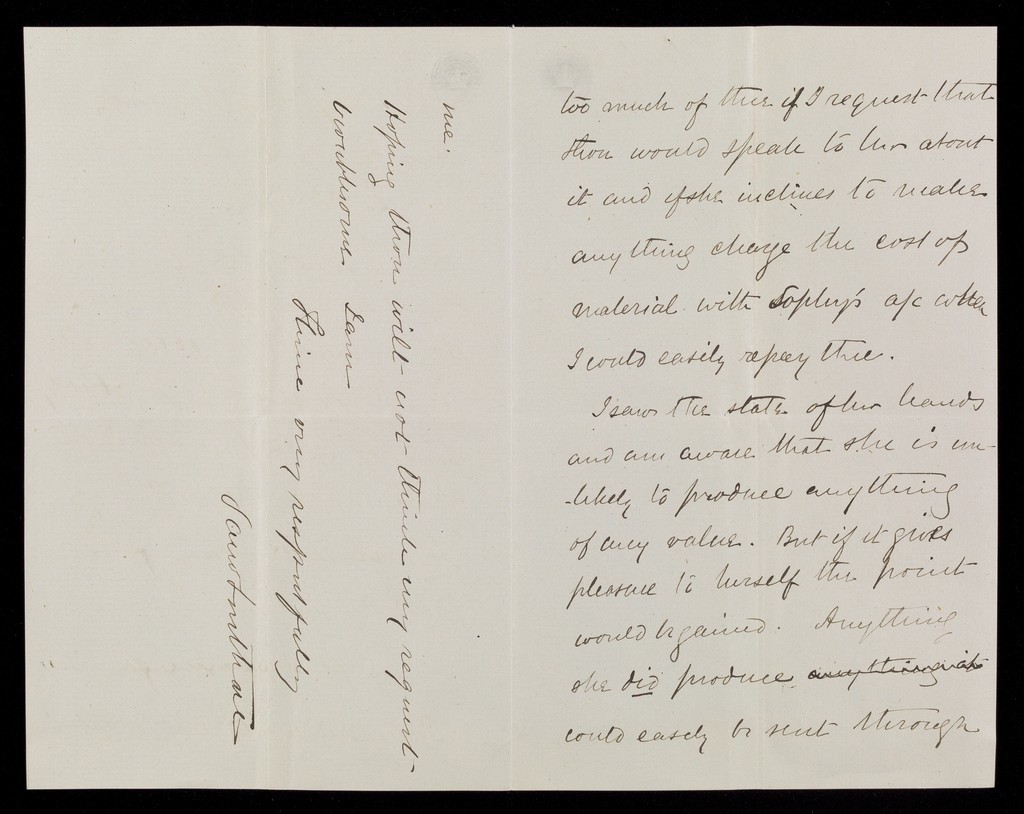 too much of thee if I request that
thou would speak to her about
it and if she inclines to make
anything charge the cost of
material with Sophy's a/c when
I could easily repay thee.
I saw the state of her hands
and am aware that she is un-
-likely to produce anything
of any value. But if it gives
pleasure to herself the point
would be gained. Anything
she did produce anything it
could easely be sent through
me.
Hoping thou wilt not think my request
troublesome I am
Thine very respectfully